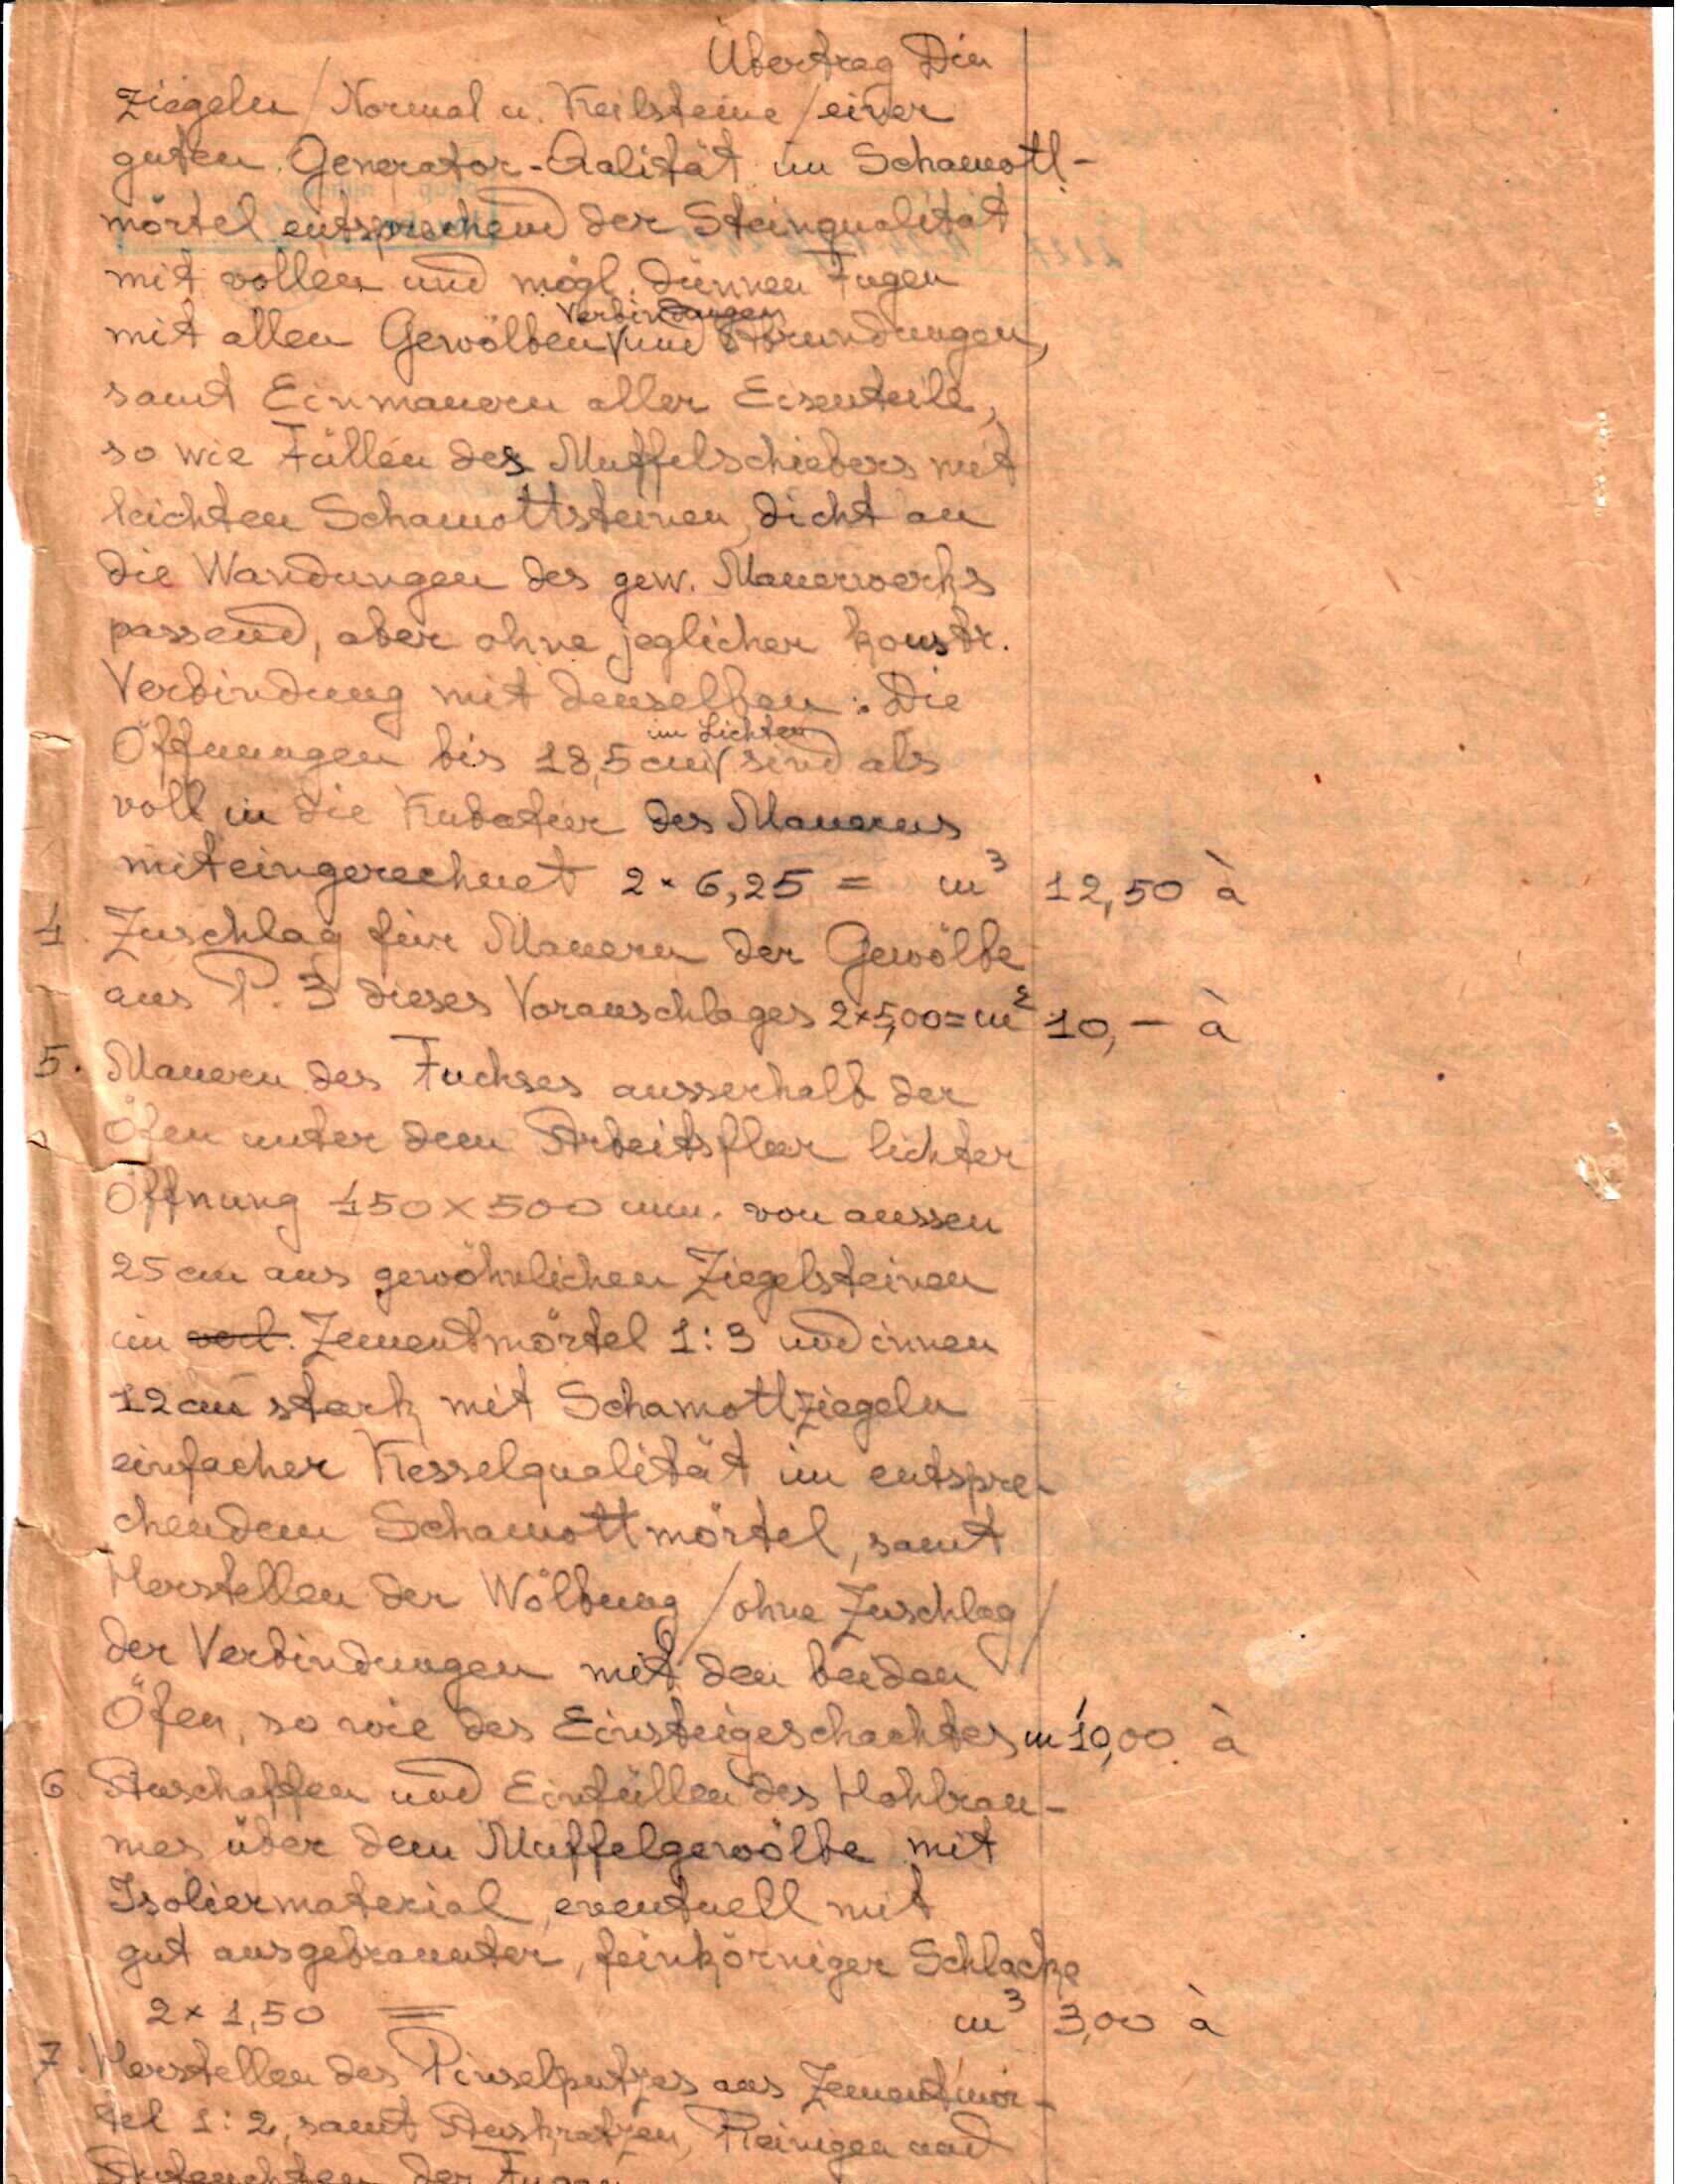 Übertrag Din
Ziegeln / Normal u. Keilsteine / einer
guten Generator-Qalität im Schamott-
mörtel entsprechend der Steinqualität
mit vollen und mögl. dünnen Fugen
Verbindungen
mit allen Gewölben und Abrundungen,
samt Einmauern aller Eisenteile,
so wie Füllen des Muffelschiebers mit
leichten Schamottsteinen, dicht an
die Wandungen des gew. Mauerwerks
passend, aber ohne jeglicher konstr.
Verbindung mit denselben. Die
im Lichten
Öffnungen bis 18,5 cm sind als
voll in die Kubatur des Mauerns
miteingerechnet 2 × 6,25 = m³ 12,50 à
4. Zuschlag für Mauern der Gewölbe
aus P. 3 dieses Voranschlages 2×5,00 = m² 10,- à
5. Mauern des Fuchses ausserhalb der
Öfen unter dem Arbeitsflur lichter
Öffnung 450 × 500 mm. von aussen
25 cm aus gewöhnlichen Ziegelsteinen
im verl. Zementmörtel 1:3 und innen
12 cm stark mit Schamottziegeln
einfacher Kesselqualität im entspre-
chendem Schamottmörtel, samt
Herstellen der Wölbung / ohne Zuschlag /
der Verbindungen mit den beiden
Öfen, so wie des Einsteigeschachtes m 10,00 à
6. Anschaffen und Einfüllen des Hohlrau-
mes über dem Muffelgewölbe mit
Isoliermaterial, eventuell mit
gut ausgebrannter, feinkörniger Schlacke
2 × 1,50 = m³ 3,00 à
7. Herstellen des Pinselputzes aus Zementmör-
tel 1:2, samt Auskratzen, Reinigen und
der Fugen